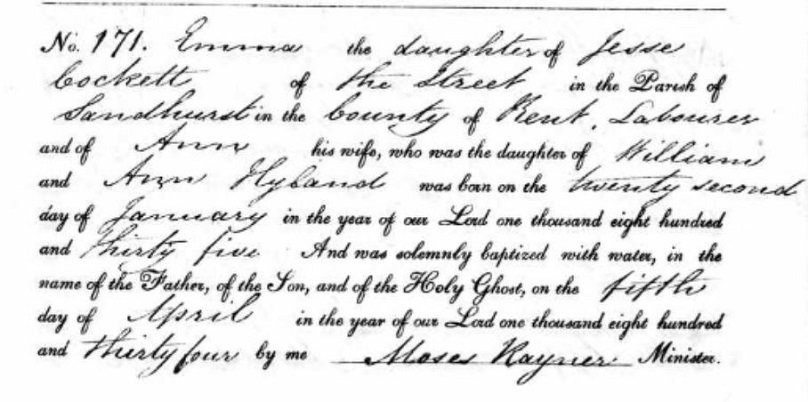 No. 171. Emma the daughter of Jesse
Cockett of the Street in the Parish of
Sandhurst in the County of Kent, Labourer
and of Ann his wife, who was the daughter of William
and Ann Hyland was born on the twenty second
day of January in the year of our Lord one thousand eight hundred
and thirty five And was solemnly baptized with water, in the
name of the Father, of the Son, and of the Holy Ghost, on the fifth
day of April in the year of our Lord one thousand eight hundred
and thirty four by me Moses Rayner Minister.